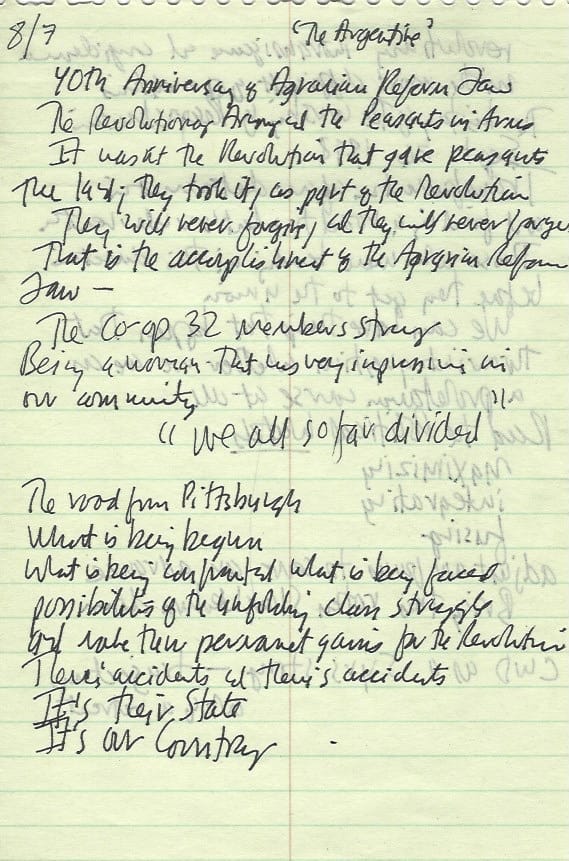 8/7 "The Argentine"
40th Anniversary of Agrarian Reform Law
The Revolutionary Army and the Peasants in Arms
It wasn't the Revolution that gave peasants
The land; they took it, as part of the Revolution
They will never forgive, and they will never forget
That is the accomplishment of the Agrarian Reform
Law —
The Co-op 32 members strong
Being a woman that was very impressive in
our community
"we all so far divided"
The road from Pittsburgh
What is being begun
What is being confronted what is being faced
possibilities of the unfolding class struggle
and make them permanent gains for the Revolution
There's accidents and there's accidents
It's their State
It's our Country